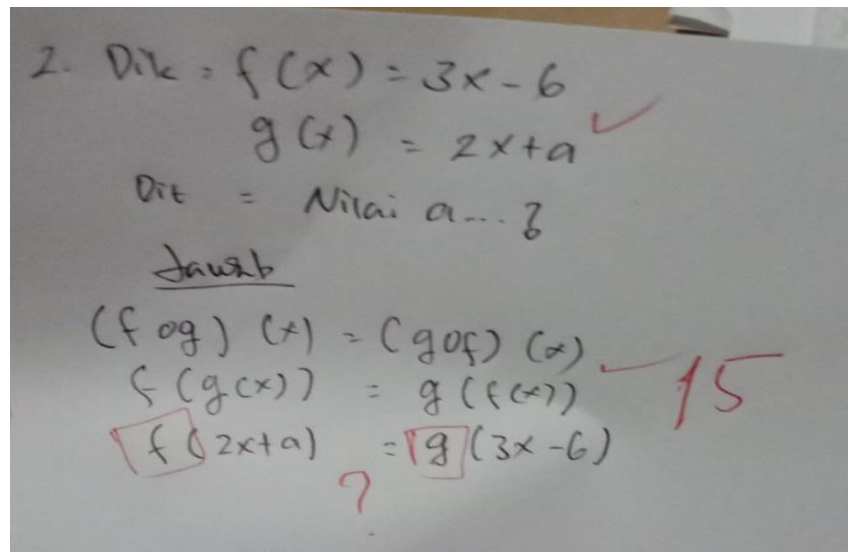 2. Dik = f(x) = 3x - 6
g(x) = 2x+a
Dit = Nilai a...?
Jawab
(f o g) (x) = (g o f) (x)
f (g(x)) = g (f(x))
15
f (2x+a) = g (3x-6)
?